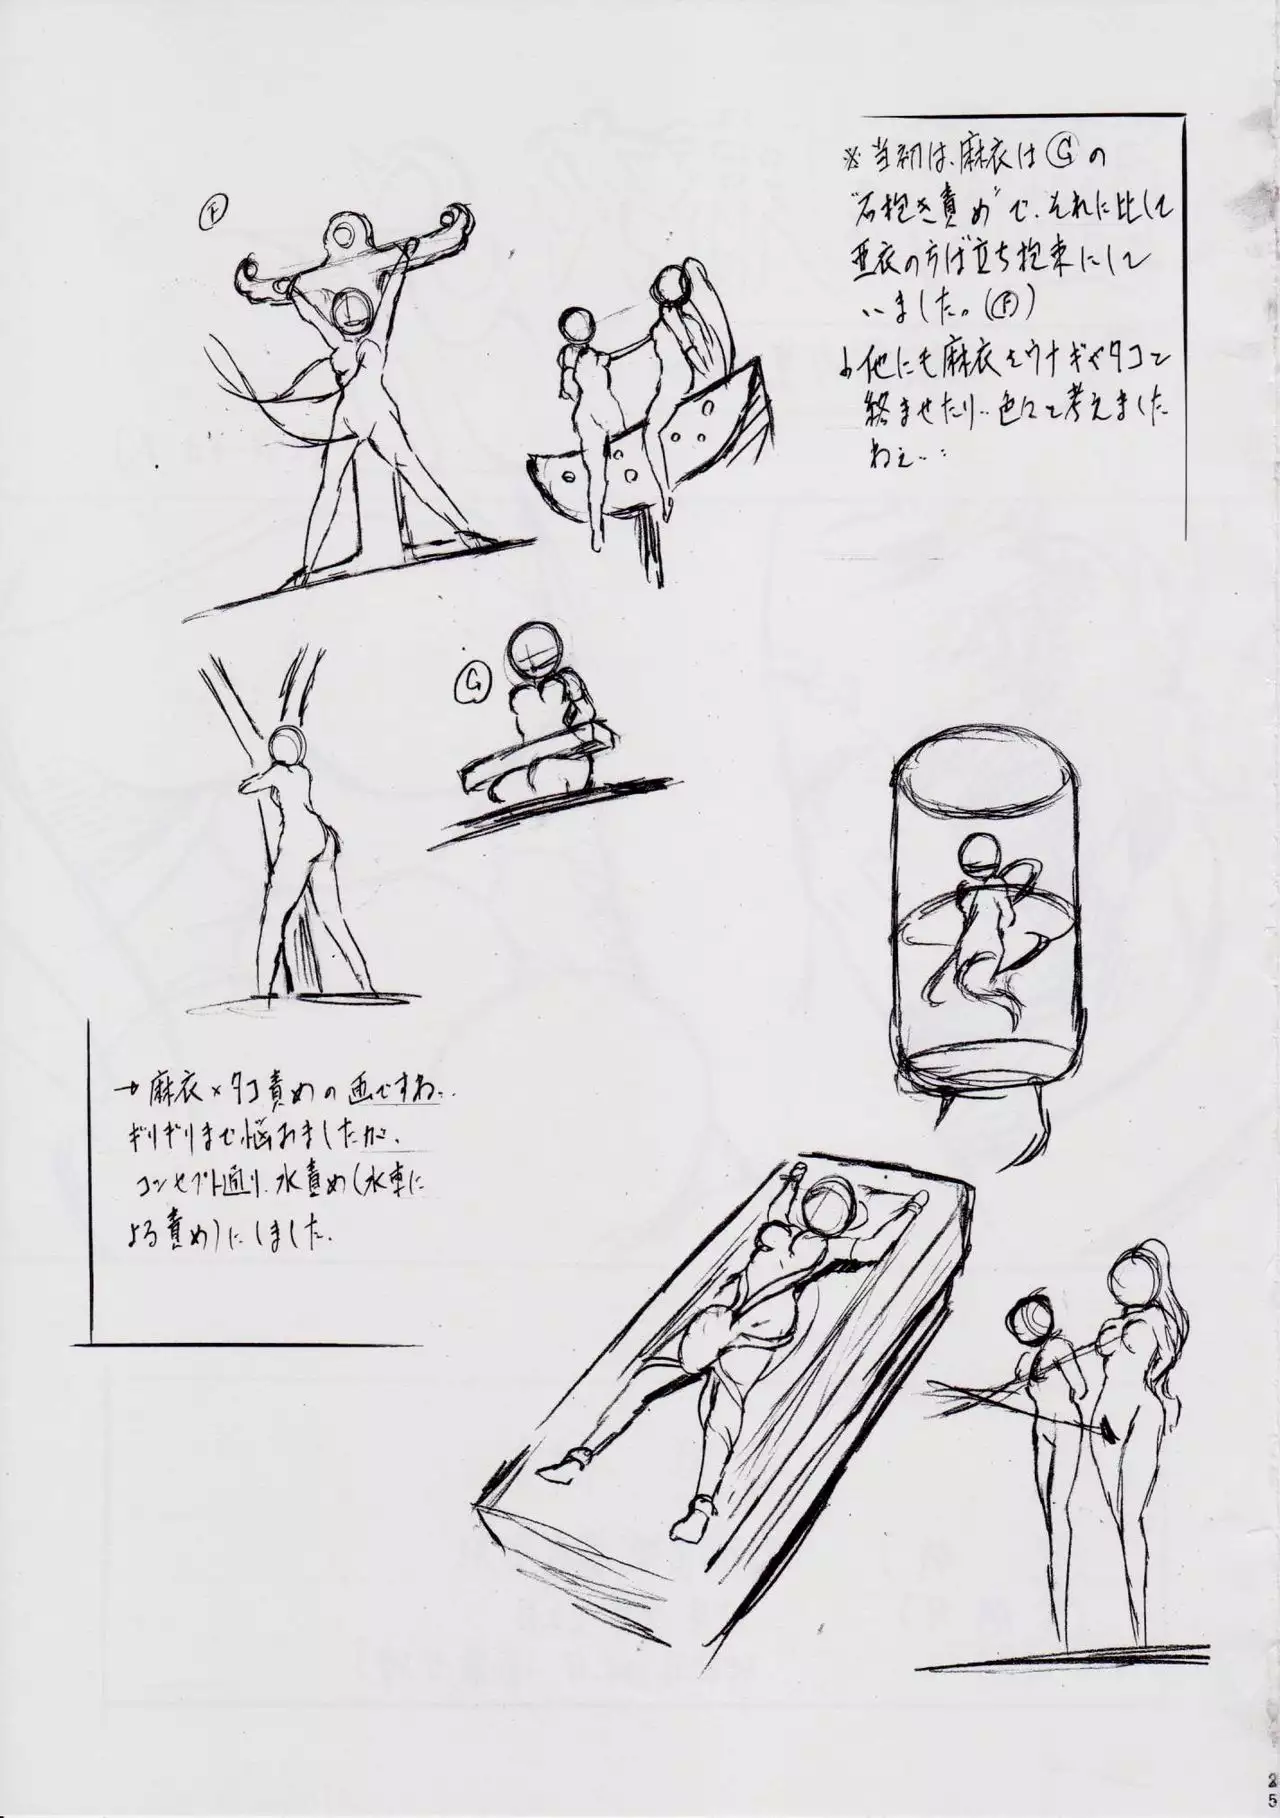 ※当初は、麻衣はGの
"石抱き責め"で、それに比して
亜衣の方は立ち拘束にして
いました。(F)
他にも麻衣をウナギやタコと
絡ませたり‥色々と考えました
ねぇ‥:
F
G
→麻衣×タコ責めの画ですね‥
ギリギリまで悩みましたが、
コンセプト通り、水責め(水車に
よる責め)にしました。
25